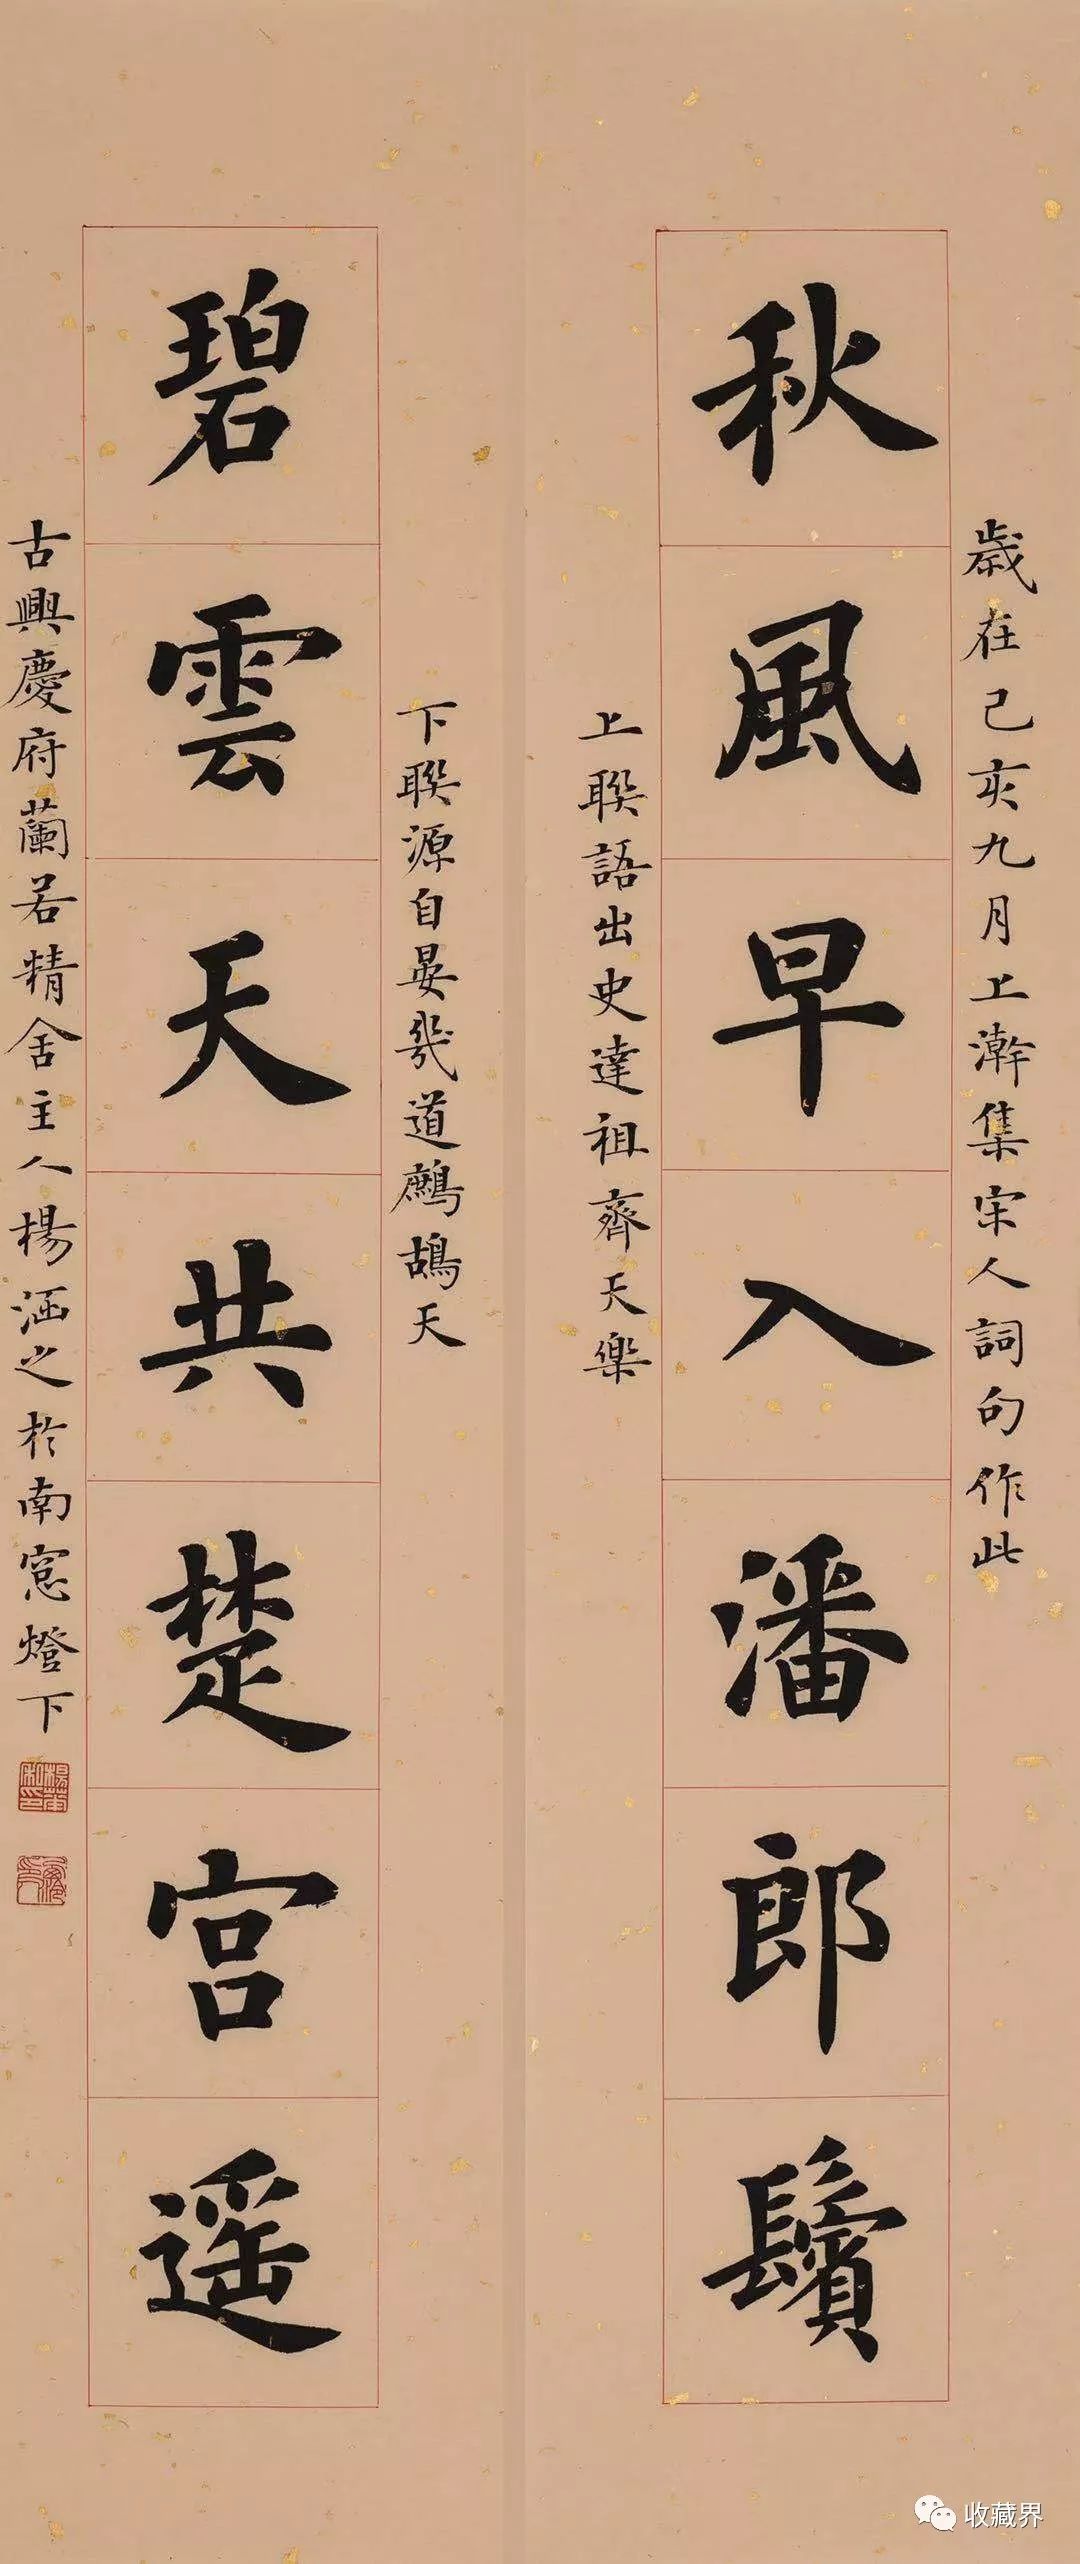 歲在己亥九月上澣集宋人詞句作此
秋風早入潘郎鬢
上聯語出史達祖齊天樂
下聯源自晏幾道鷓鴣天
碧雲天共楚宮遥
古興慶府蘭若精舍主人楊涵之於南窓燈下
收藏界